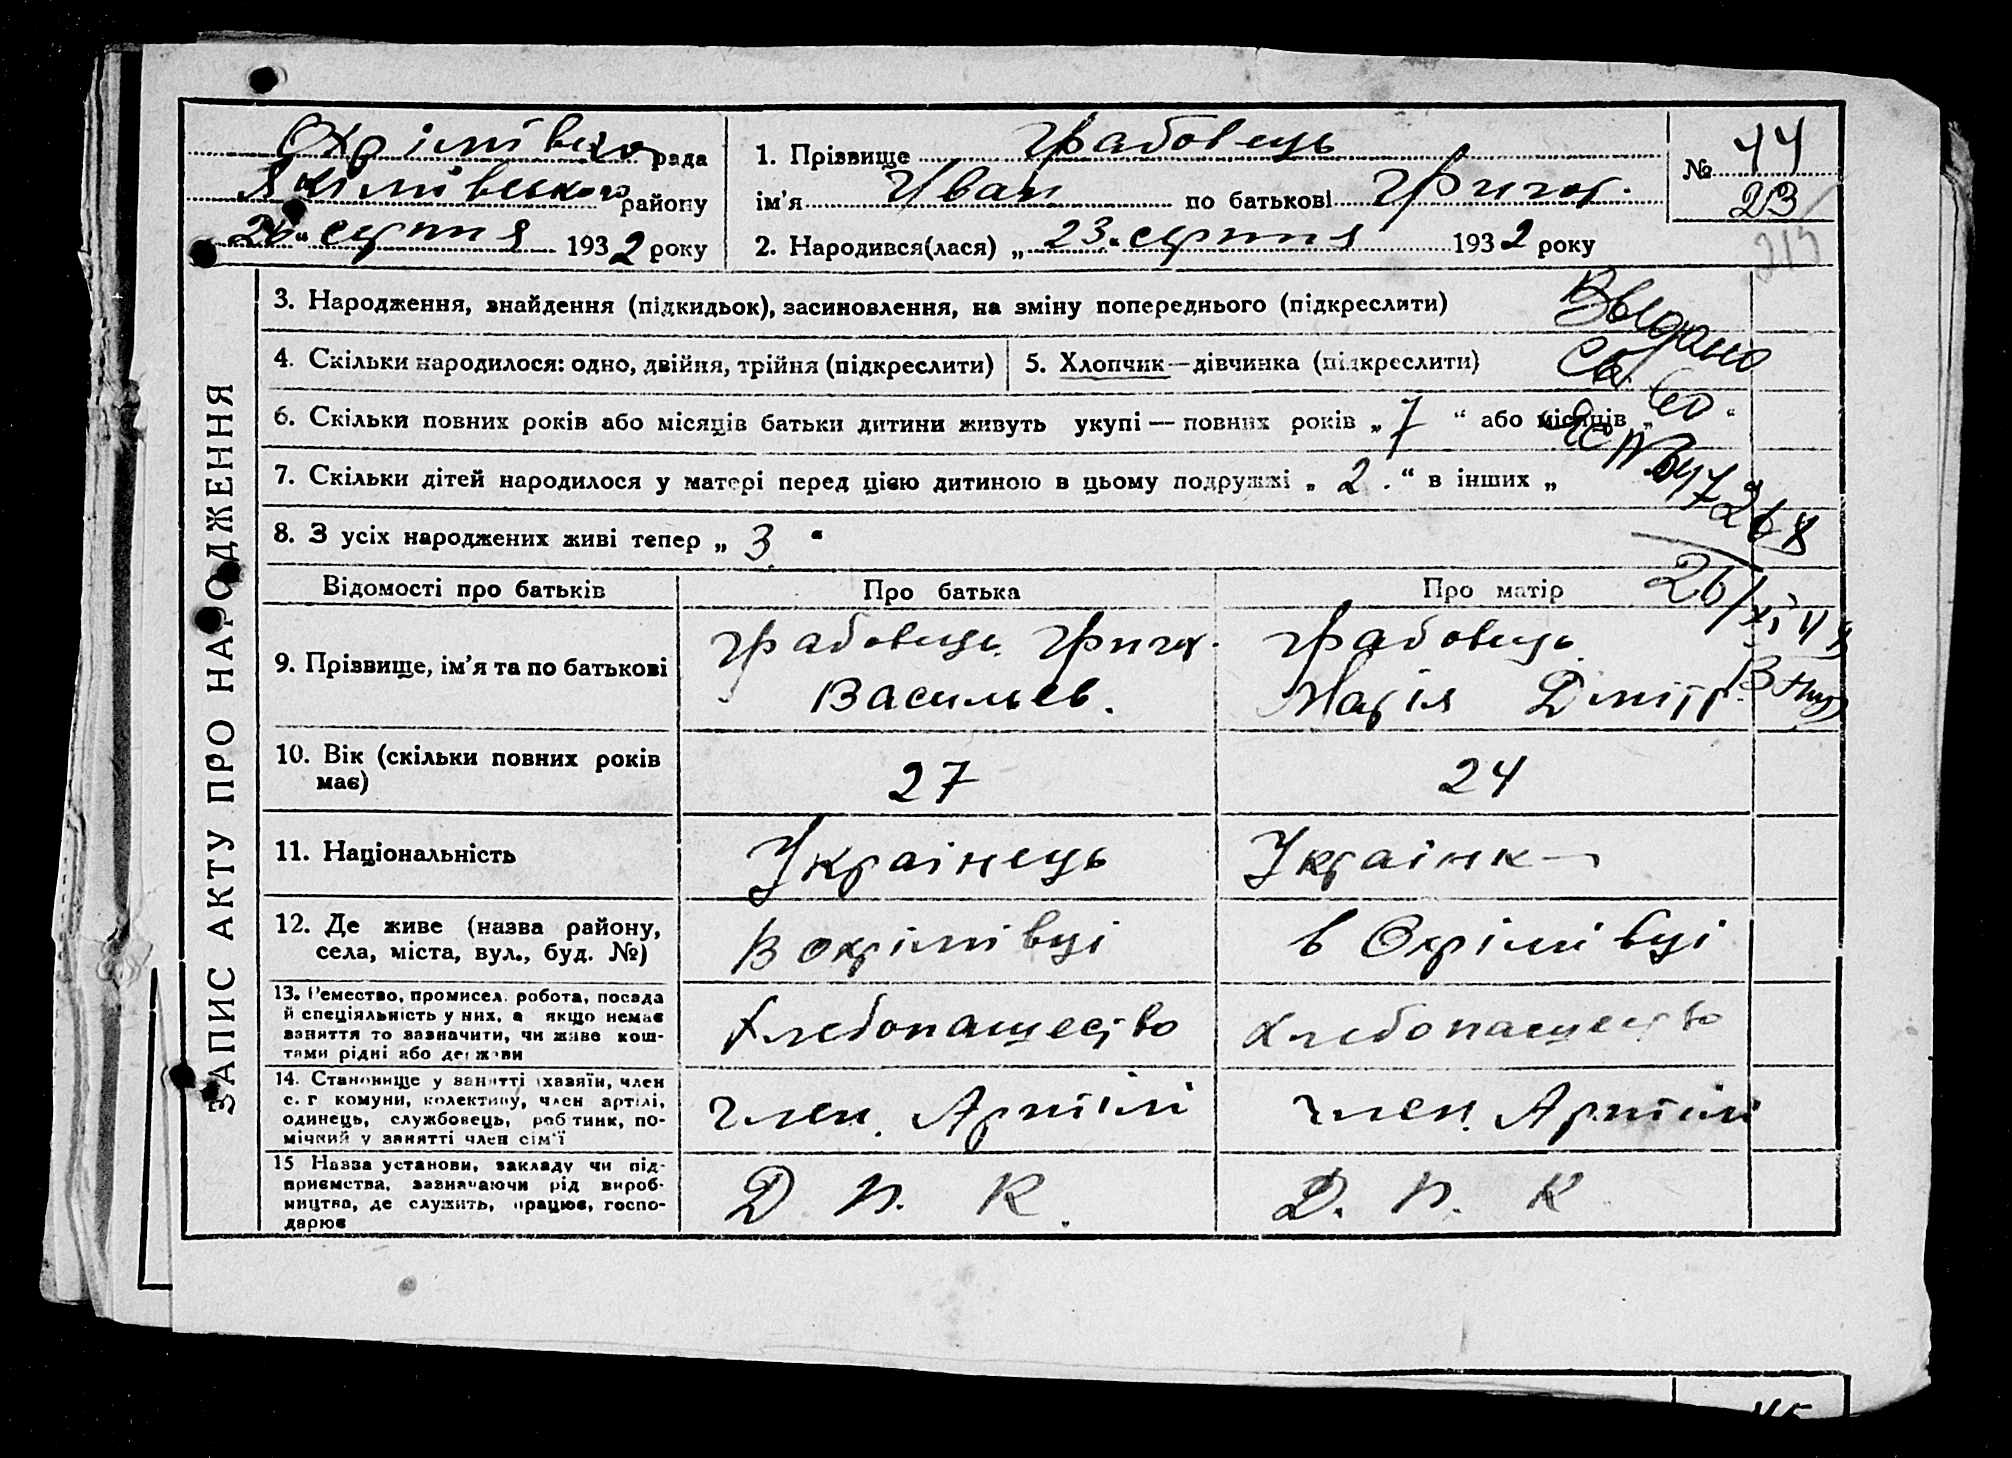 Охрімівська рада
Якімівського району
26 „ серпня 1932 року
1. Прізвище Грабовець
ім'я Иван по батькові Григор.
2. Народився(лася) „ 23 “ серпня 1932 року
№ 44
23
ЗАПИС АКТУ ПРО НАРОДЖЕННЯ
3. Народження, знайдення (підкидьок), засиновлення, на зміну попереднього (підкреслити)
4. Скільки народилося: одно, двійня, трійня (підкреслити)
5. Хлопчик—дівчинка (підкреслити)
6. Скільки повних років або місяців батьки дитини живуть укупі — повних років „ 7 “ або місяців „ “
7. Скільки дітей народилося у матері перед цією дитиною в цьому подружжі „ 2. “ в інших „
8. З усіх народжених живі тепер „ 3 “
Выдано
Св.
Відомості про батьків
Про батька
Про матір
9. Прізвище, ім'я та по батькові
Грабовець Григор.
Васильев.
Грабовець
Марія Дмітр.
10. Вік (скільки повних років
має)
27
24
11. Національність
Українець
Українк
12. Де живе (назва району,
села, міста, вул., буд. №)
В Охрімівці
в Охрімівці
13. Ремество, промисел, робота, посада
й спеціяльність у них, а якщо немає
заняття то зазначити, чи живе кош-
тами рідні або держави
Хлебопашество
Хлебопашество
14. Становище у занятті хазяїн, член
с. г комуни, колективу, член артілі,
одинець, службовець, робітник, по-
мічний у занятті член сім'ї
член. Артілі
член. Артілі
15 Назва установи, закладу чи під-
приємства, зазначаючи рід вироб-
ництва, де служить, працює, госпо-
дарює
Д П. К.
Д. П. К
45